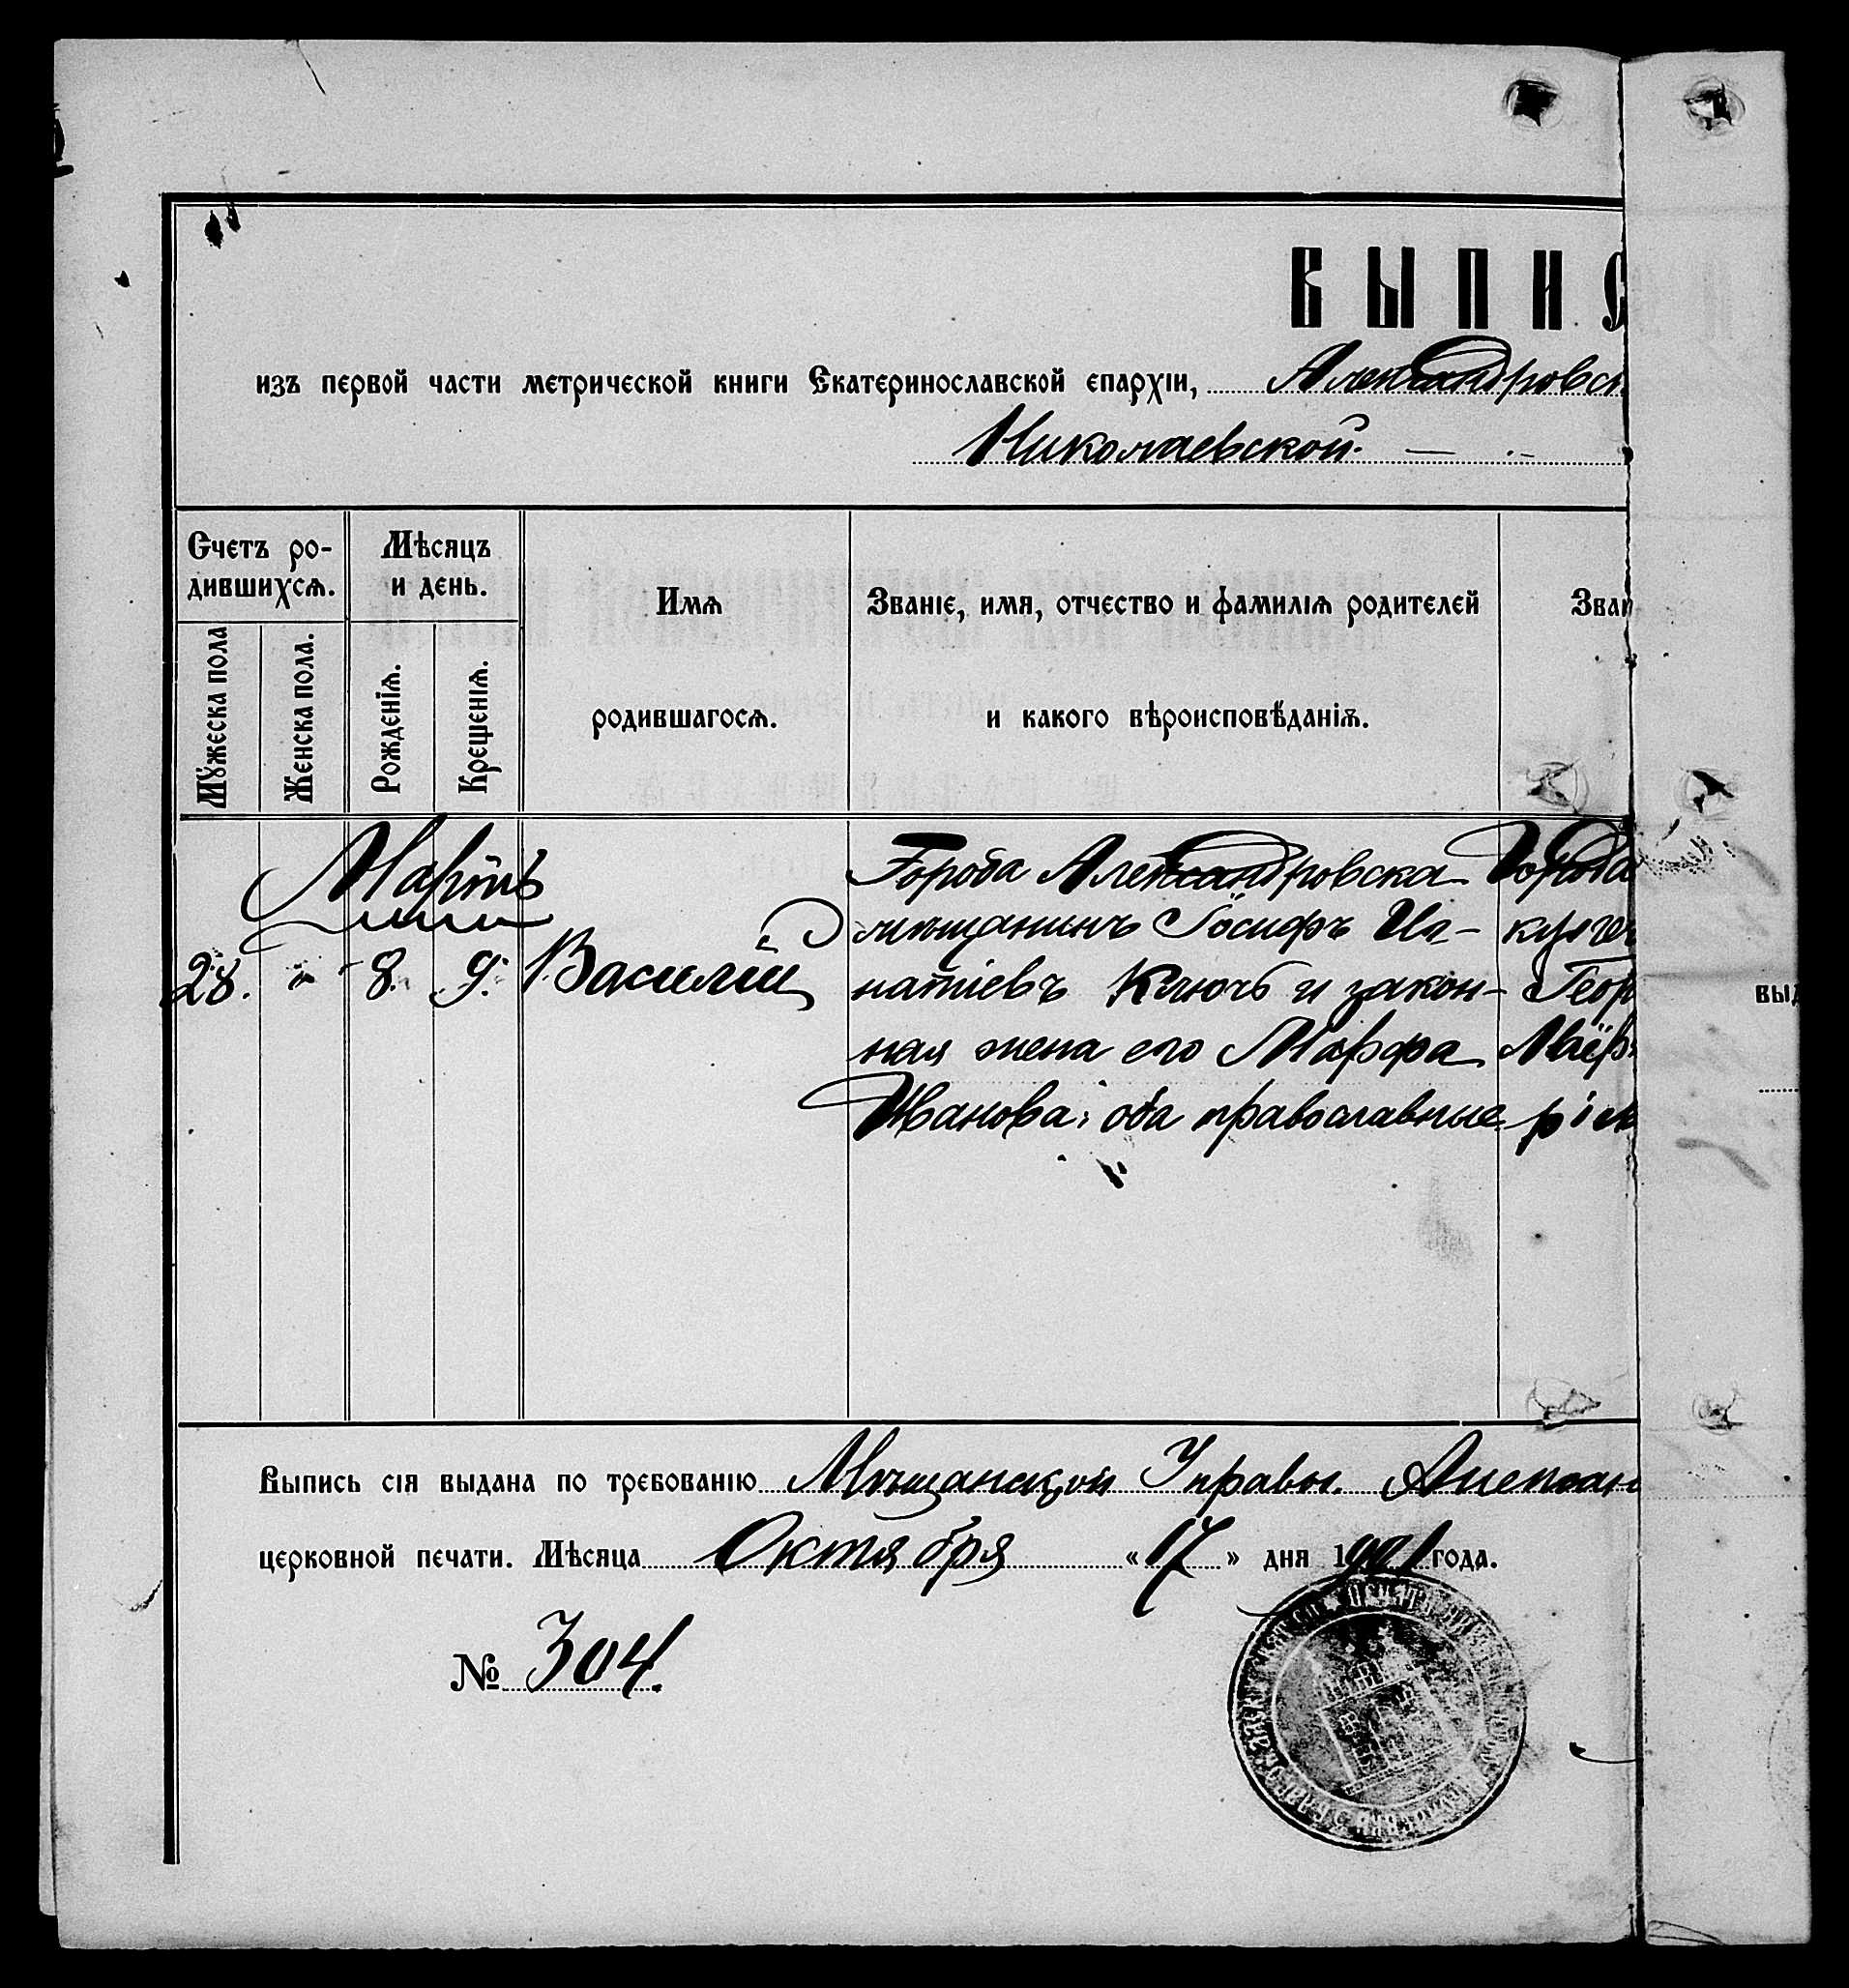 ВЫПИС
изъ первой части метрической книги Екатеринославской епархіи, Александровск
Николаевской.
Счетъ ро-
дившихся.
Мѣсяцъ
и день.
Имя
родившагося.
Званіе, имя, отчество и фамилія родителей
и какого вѣроисповѣданія.
Зван
Мужеска пола
Женска пола.
Рожденія.
Крещенія.
Мартъ
28. " 8. 9. Василій
Города Александровска
мѣщанинъ Іосифъ Иг-
натіевъ Ключъ и закон-
ная жена его Марфа
Иванова; оба православные
Города
купеч
Геор
рім
выд
Выпись сія выдана по требованію Мѣщанской Управы. Алексан
церковной печати. Мѣсяца Октября «17» дня 1901 года.
№ 304.